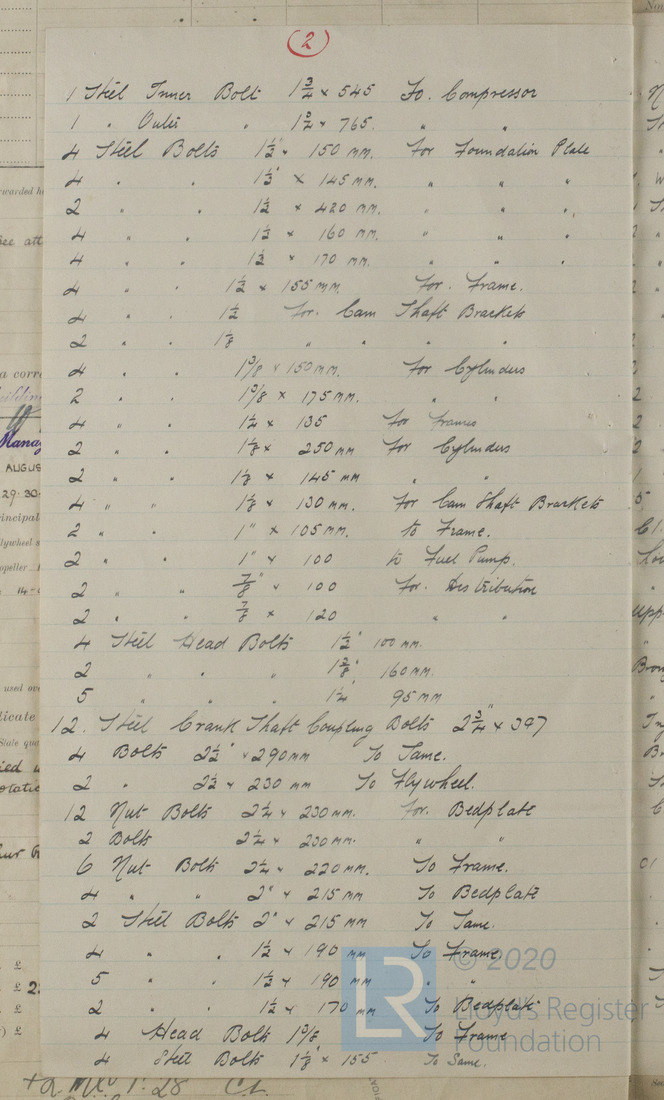 (2)
1 Steel Inner Bolt 1 3/4 × 545 To. Compressor
1 " Outer " 1 3/4 × 765. " "
4 Steel Bolts 1 1/2" × 150 mm. For Foundation Plate
4 " " 1 1/2" × 145 mm. " " "
2 " " 1 1/2 × 420 mm. " " "
4 " " 1 1/2 × 160 mm. " " "
4 " " 1 1/2 × 170 mm. " " "
4 " " 1 1/2 × 155 mm. For. Frame.
4 " " 1 1/2 For. Cam Shaft Brackets
2 " " 1 1/8 " " " "
4 " " 1 3/8 × 150 mm. For Cylinders
2 " " 1 3/8 × 175 mm. " "
4 " " 1 1/4 × 135 For Frames
2 " " 1 1/8 × 250 mm For Cylinders
2 " " 1 1/8 × 145 mm " "
4 " " 1 1/8 × 130 mm. For Cam Shaft Brackets
2 " " 1" × 105 mm. to Frame.
2 " " 1" × 100 to Fuel Pump.
2 " " 7/8" × 100 For. Distribution
2 " " 7/8 × 120 " "
4 Steel Head Bolts 1 1/2" 100 mm.
2 " " " 160 mm.
5 " " " 1 1/4" 95 mm
12. Steel Crank Shaft Coupling Bolts 2 3/4" × 397
4 Bolts 2 1/2" × 290 mm To Same.
2 " 2 1/2 × 230 mm To Flywheel.
12 Nut Bolts 2 1/4 × 230 mm. For. Bedplate
2 Bolts 2 1/4 × 230 mm. " "
6 Nut Bolts 2 1/4 × 220 mm. To Frame.
4 " " 2" × 215 mm To Bedplate
2 Steel Bolts 2" × 215 mm To Same.
4 " " 1 1/2 × 190 mm To Frame.
5 " " 1 1/2 × 190 mm " "
2 " " 1 1/2 × 170 mm To Bedplate
4 Head Bolts 1 3/8 To Frame
4 Steel Bolts 1 1/8" × 155 To Same.
LR © 2020
Lloyd's Register
Foundation